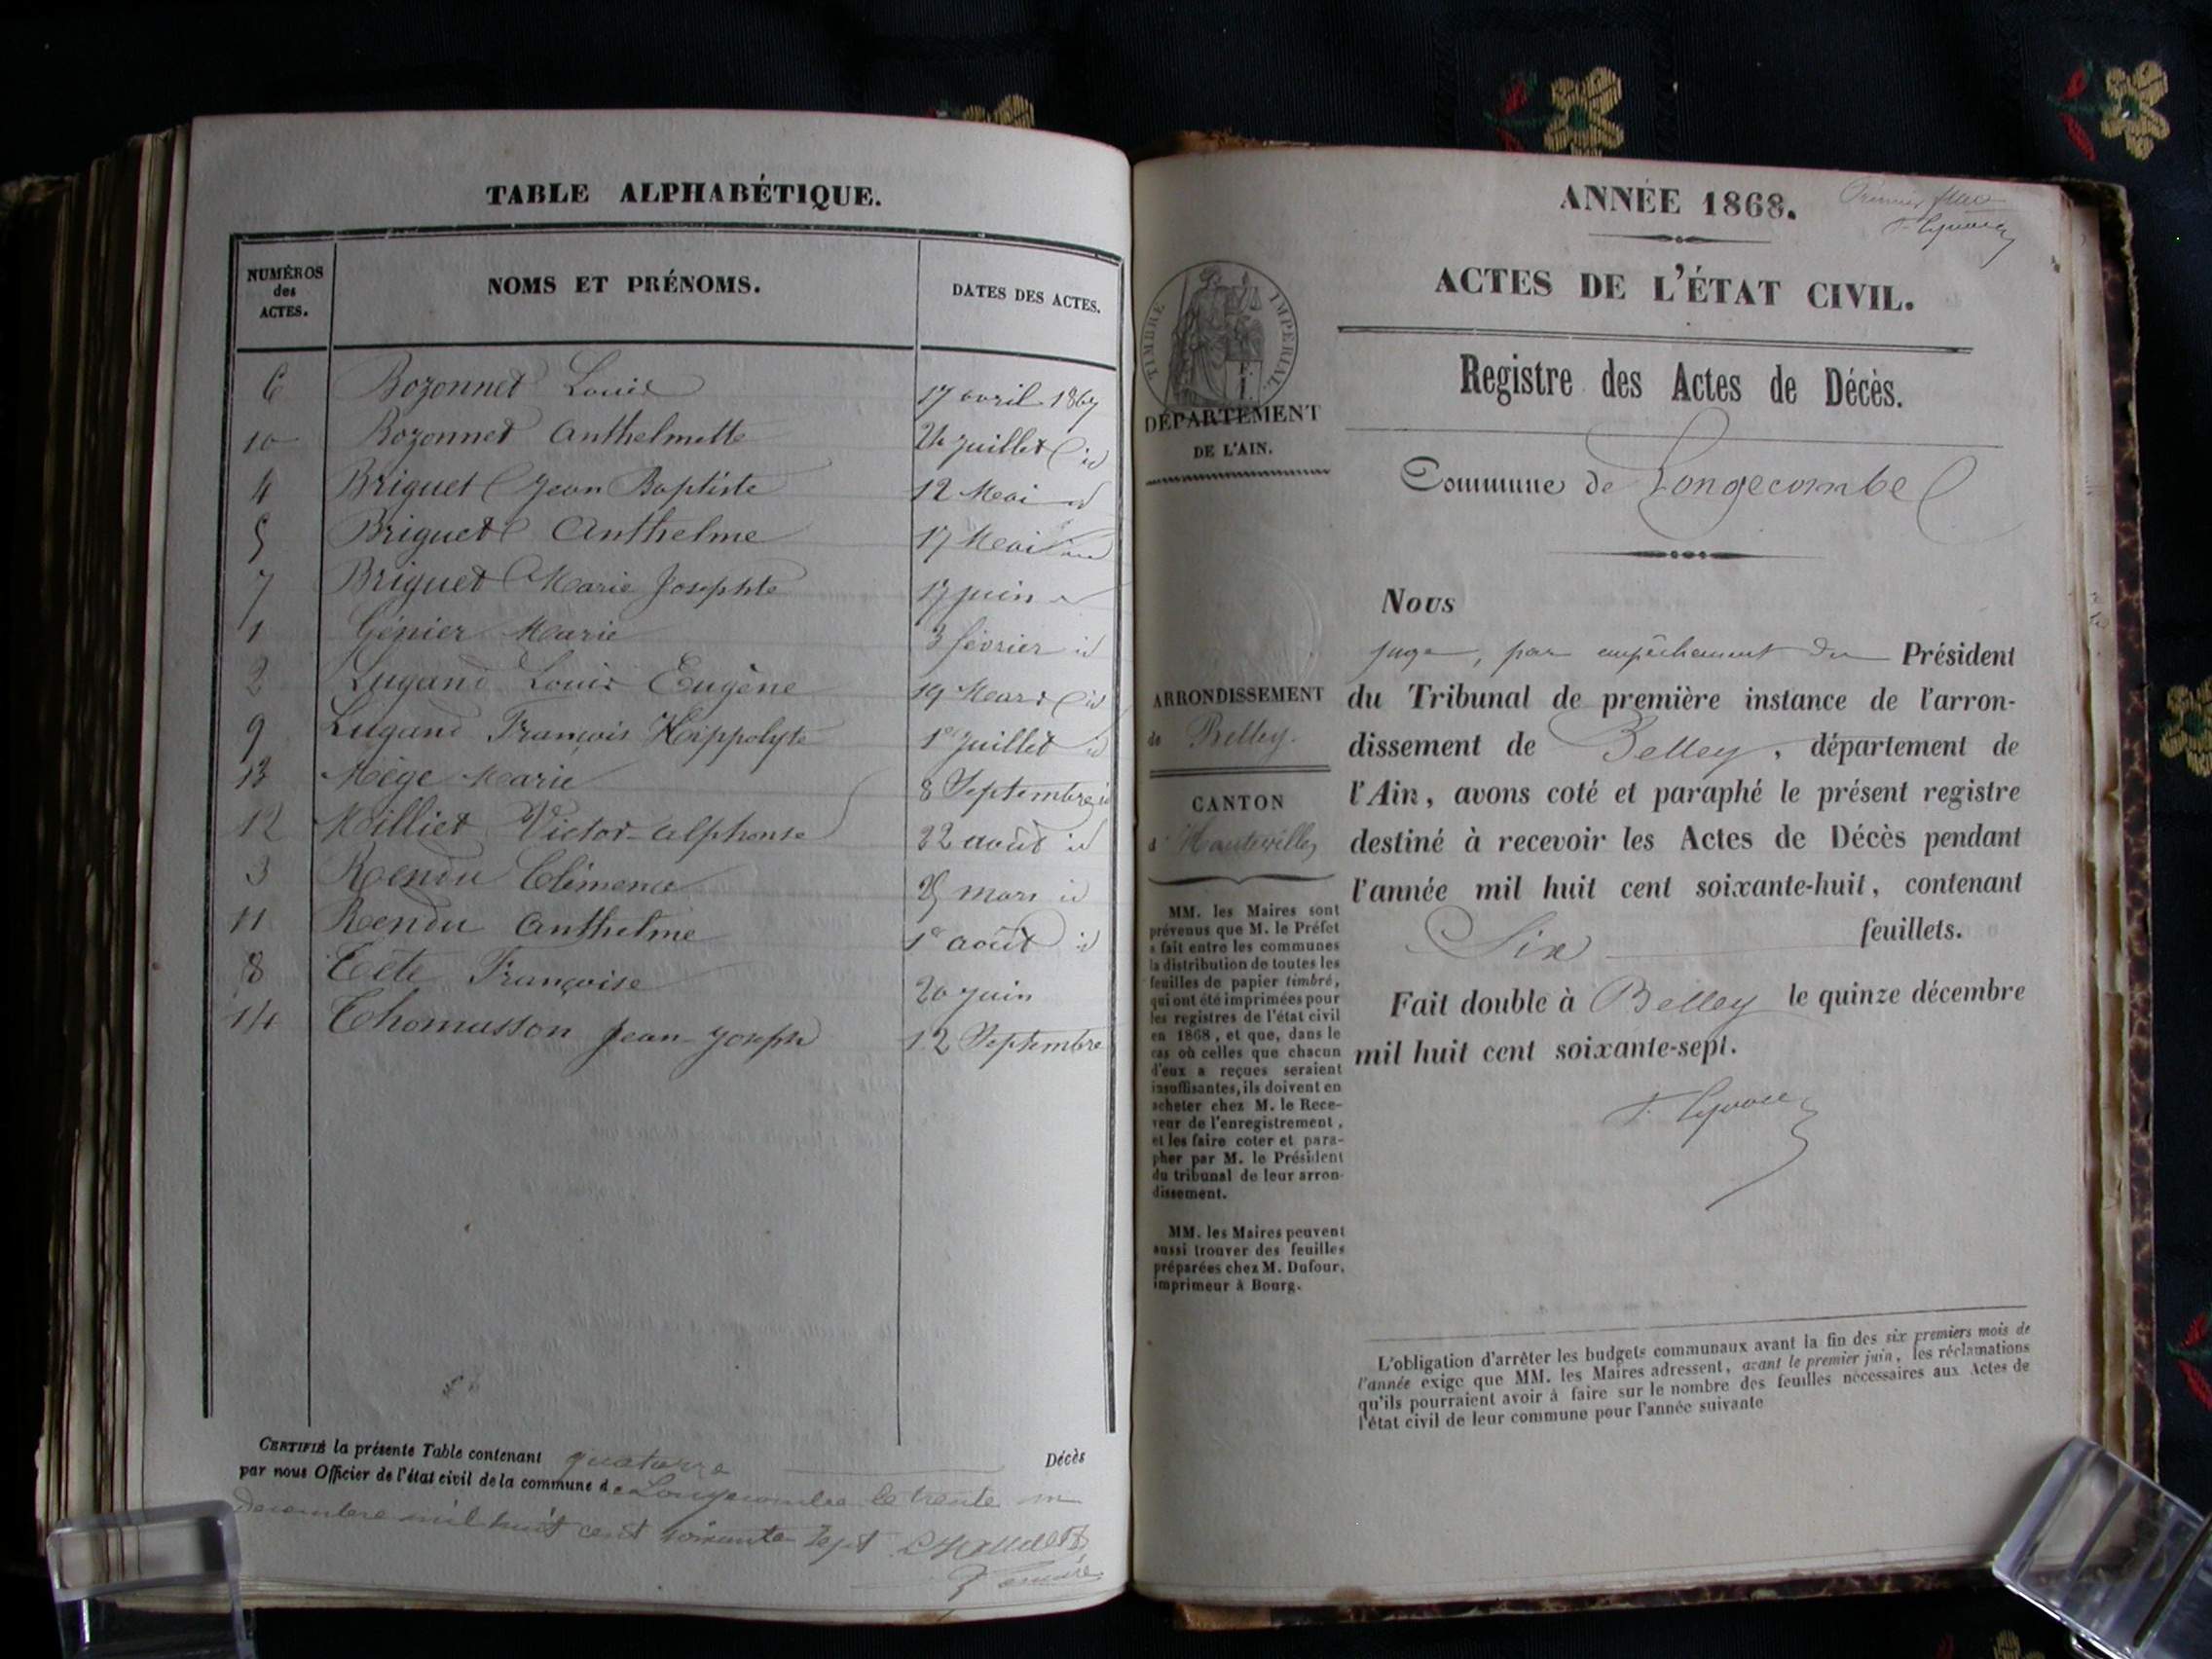 TABLE ALPHABÉTIQUE.
NUMÉROS des ACTES. NOMS ET PRÉNOMS. DATES DES ACTES.
6 Bozonnet Louis 17 avril 1867
10 Bozonnet Anthelmette 24 juillet id
4 Briguet Jean Baptiste 12 Mai id
5 Briguet Anthelme 17 Mai
7 Briguet Marie Josephte 17 juin
1 Génier Marie 3 février id
2 Lugand Louis Eugène 19 Mars id
9 Lugand François Hippolyte 1er juillet id
13 Mège Marie 8 Septembre id
12 Milliet Victor-alphonse 22 août id
3 Rendu Clémence 25 mars id
11 Rendu Anthelme 1er août id
8 Tête Françoise 20 juin
14 Thomasson Jean-Joseph 12 Septembre
CERTIFIÉ la présente Table contenant quatorze Décès
par nous Officier de l'état civil de la commune de Longecombe le trente un
décembre mil huit cent soixante sept
ANNÉE 1868.
Premier
ACTES DE L'ÉTAT CIVIL.
Registre des Actes de Décès.
Commune de Longecombe
TIMBRE IMPÉRIAL
DÉPARTEMENT
DE L'AIN.
ARRONDISSEMENT
de Belley.
CANTON
d'Hauteville
MM. les Maires sont
prévenus que M. le Préfet
a fait entre les communes
la distribution de toutes les
feuilles de papier timbré,
qui ont été imprimées pour
les registres de l'état civil
en 1868, et que, dans le
cas où celles que chacun
d'eux a reçues seraient
insuffisantes, ils doivent en
acheter chez M. le Rece-
veur de l'enregistrement,
et les faire coter et para-
pher par M. le Président
du tribunal de leur arron-
dissement.
MM. les Maires peuvent
aussi trouver des feuilles
préparées chez M. Dufour,
imprimeur à Bourg.
Nous
juge, par empêchement du Président
du Tribunal de première instance de l'arron-
dissement de Belley, département de
l'Ain, avons coté et paraphé le présent registre
destiné à recevoir les Actes de Décès pendant
l'année mil huit cent soixante-huit, contenant
Six feuillets.
Fait double à Belley le quinze décembre
mil huit cent soixante-sept.
L'obligation d'arrêter les budgets communaux avant la fin des six premiers mois de
l'année exige que MM. les Maires adressent, avant le premier juin, les réclamations
qu'ils pourraient avoir à faire sur le nombre des feuilles nécessaires aux Actes de
l'état civil de leur commune pour l'année suivante